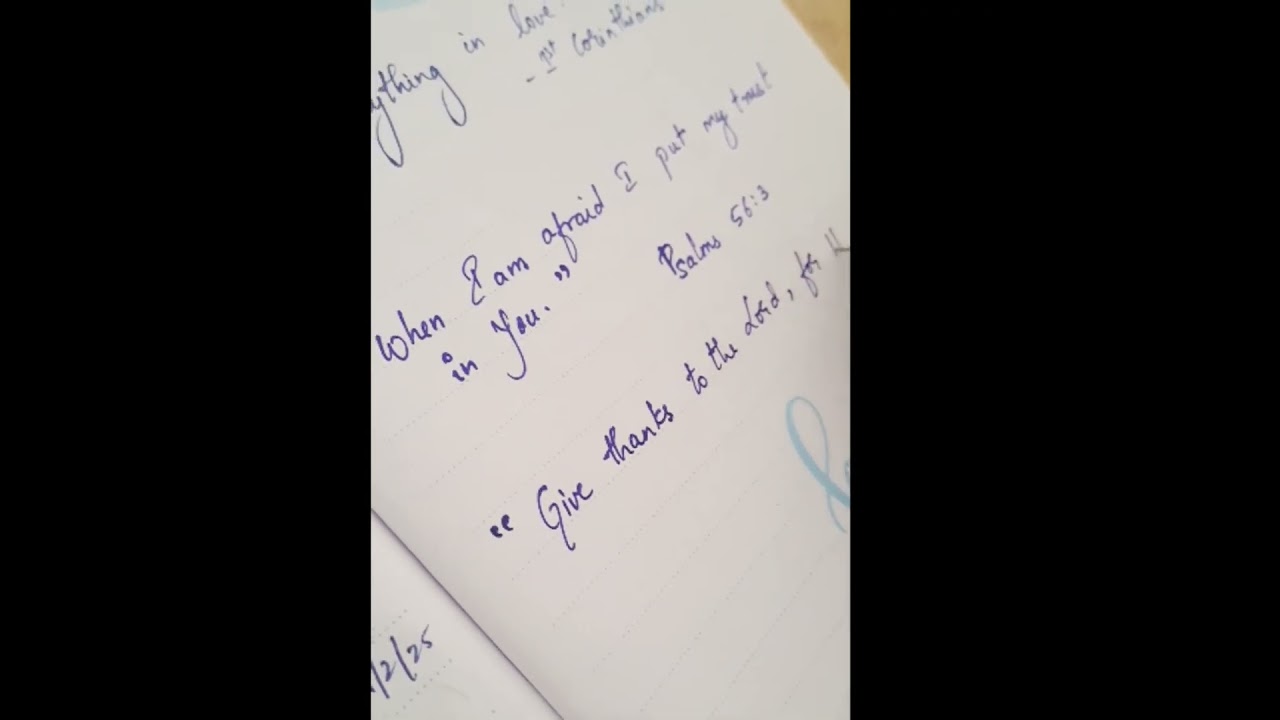 ything in love.
- 1st Corinthians
When I am afraid I put my trust
in You.”
Psalms 56:3
“ Give thanks to the Lord, for H
/2/25